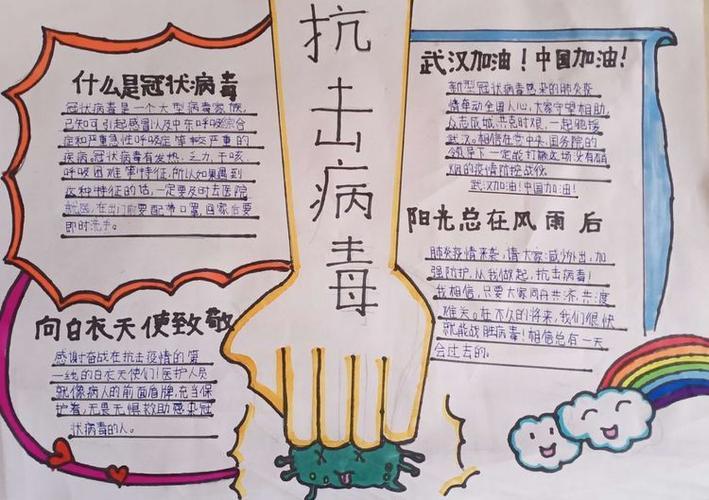 抗击病毒
什么是冠状病毒
冠状病毒是一个大型病毒家族,
已知可引起感冒以及中东呼吸综合
症和严重急性呼吸症等较严重的
疾病,冠状病毒有发热、乏力、干咳
呼吸困难等特征,所以如果遇到
这种特征的话,一定要及时去医院
就医,在出门前要配带口罩,回家后要
即时洗手。
向白衣天使致敬
感谢奋战在抗击疫情的第
一线的白衣天使们!医护人员
就像病人的前面盾牌,充当保
护着,无畏无惧救助感染冠
状病毒的人。
武汉加油!中国加油!
新型冠状病毒感染的肺炎疫
情牵动全国人心,大家守望相助,
众志成城,共克时艰,一起驰援
武汉。相信在党中央、国务院的
领导下一定能打赢这场没有硝
烟的疫情防控战役
武汉加油!中国加油!
阳光总在风雨后
肺炎疫情来袭,请大家:减少外出,加
强防护,从我做起,抗击病毒!
我相信,只要大家同舟共济,共渡
难关。在不久的将来,我们很快
就能战胜病毒!相信总有一天
会过去的。